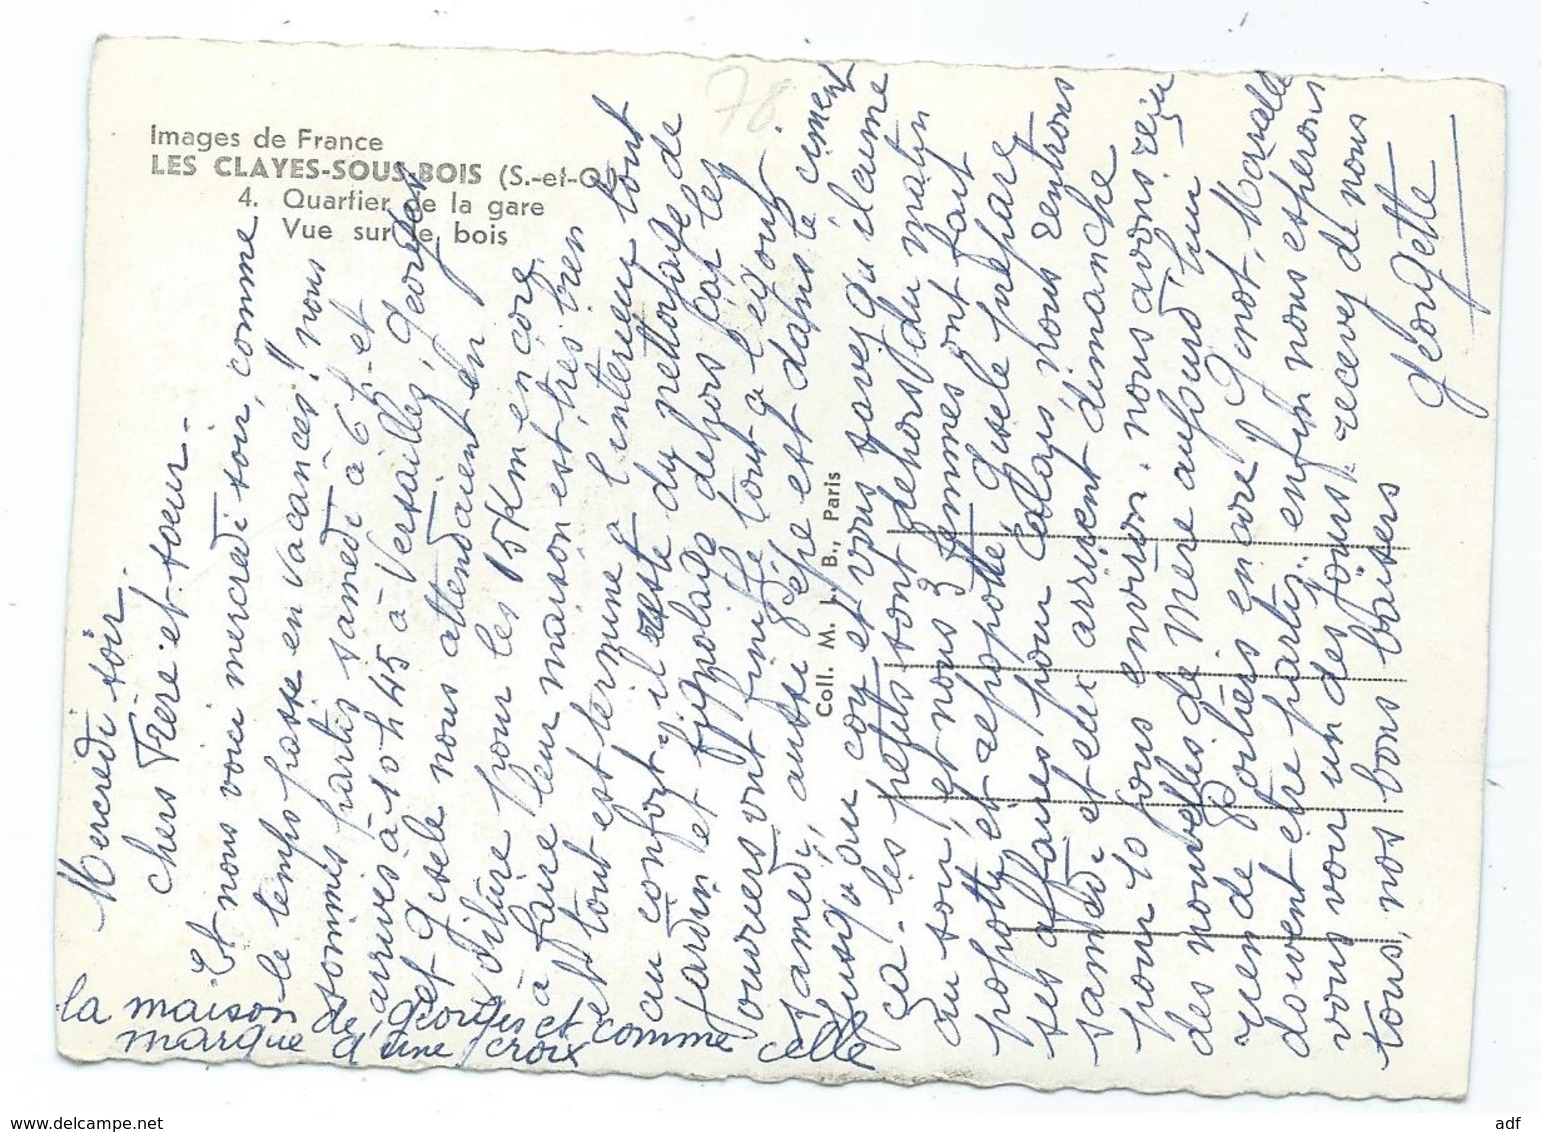 Images de France
LES CLAYES-SOUS-BOIS (S.-et-O.)
4. Quartier de la gare
Vue sur le bois
78
Coll. M. L. B., Paris
Mercredi soir
chers Frère et soeur.
Et nous voici mercredi soir, comme
le temps passe en vacances! nous
sommes partis samedi à 6h et
arrivés à 10h45 à Versailles, Georges
et Gisele nous attendaient en
voiture pour les 15 Km encore
à faire leur maison est très bien
et tout est terminé à l'intérieur tout
au confort, il reste du nettoyage de
jardin et bricolage dehors car les
ouvriers ont finit tout a l'égout
samedi, aussi pépé est dans le ciment
jusqu'au cou et vous savez qu'il aime
ça. les petits sont dehors du matin
au soir, et nous 3 femmes ont fait
popotte et repopotte, Gisele prépare
ses affaires pour Calais, nous rentrons
samedi et eux arrivent dimanche
pour 10 jours environ. nous avons reçu
des nouvelles de Mère aujourd'hui
rien de Poitiers encore! Ginot,
doivent être partis. enfin nous espérons
vous voir un des jours. recevez de nous
tous, nos bons baisers
Georgette
la maison de Georges est comme celle
marqué d'une croix